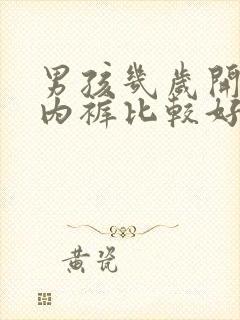 男孩幾歲開
內褲比較好
黃瓷